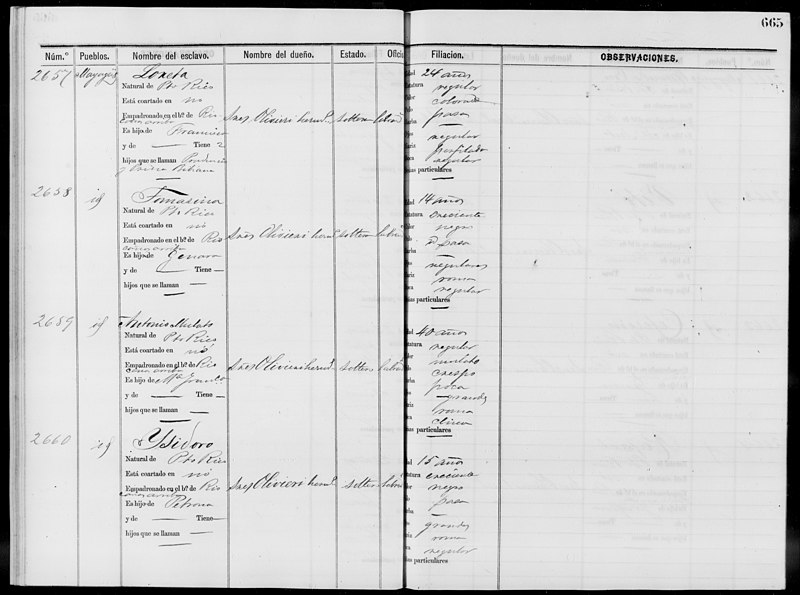 665
Núm.° Pueblos. Nombre del esclavo. Nombre del dueño. Estado. Oficio Filiacion. OBSERVACIONES.
2657 Mayagüez Loreta
Natural de Pto Rico
Está coartado en no
Empadronado en el b.° de Rio
cañas arriba
Es hijo de Francisca
y de — Tiene 2
hijos que se llaman
Sres Olivieri herm.s soltera labra
Edad 24 años
Estatura regular
Color colorado
Pelo pasa
Barba —
regular
Nariz perfilada
Boca regular
Señas particulares —
2658 id Tomasina
Natural de Pto Rico
Está coartado en no
Empadronado en el b.° de Rio
cañas arriba
Es hijo de Genara
y de — Tiene —
hijos que se llaman —
Sres Olivieri herm.s soltera labra
Edad 14 años
Estatura creciente
Color negro
Pelo pasa
Barba —
regulares
Nariz roma
Boca regular
Señas particulares —
2659 id Antonio Mulato
Natural de Pto Rico
Está coartado en no
Empadronado en el b.° de Rio
cañas arriba
Es hijo de
y de — Tiene —
hijos que se llaman —
Sres Olivieri herm.s soltero labra
Edad 40 años
Estatura regular
Color mulato
Pelo crespo
Barba poca
grandes
Nariz roma
Boca chica
Señas particulares —
2660 id Ysidoro
Natural de Pto Rico
Está coartado en no
Empadronado en el b.° de Rio
cañas arriba
Es hijo de Petrona
y de — Tiene —
hijos que se llaman —
Sres Olivieri herm.s soltero labra
Edad 15 años
Estatura creciente
Color negro
Pelo pasa
Barba —
grandes
Nariz roma
Boca regular
Señas particulares